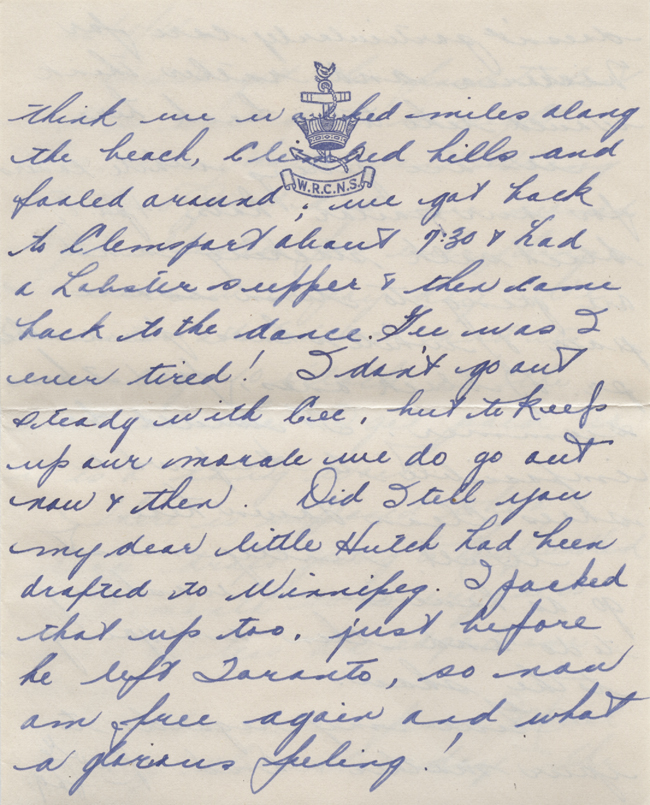 W.R.C.N.S.
think we walked miles along
the beach, climbed hills and
fooled around, we got back
to Clemsport about 7:30 & had
a Lobster supper & then came
back to the dance. Gee was I
ever tired! I don't go out
steady with Cec, but to keep
up our morale we do go out
now & then. Did I tell you
my dear little Hutch had been
drafted to Winnipeg. I fucked
that up too, just before
he left Toronto, so now
am free again and what
a glorious feeling!